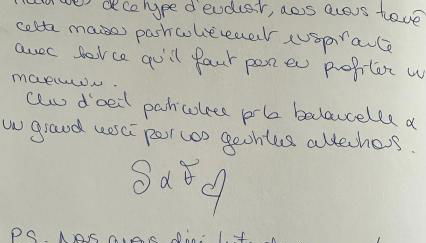 de ce type d'endroit, nous avons trouvé
cette maison particulièrement inspirante
avec tout ce qu'il faut pour en profiter un
maximum.
Clin d'oeil particulier pr la balancelle &
un grand merci pour vos gentilles attentions.
S & F
PS. Nous avons